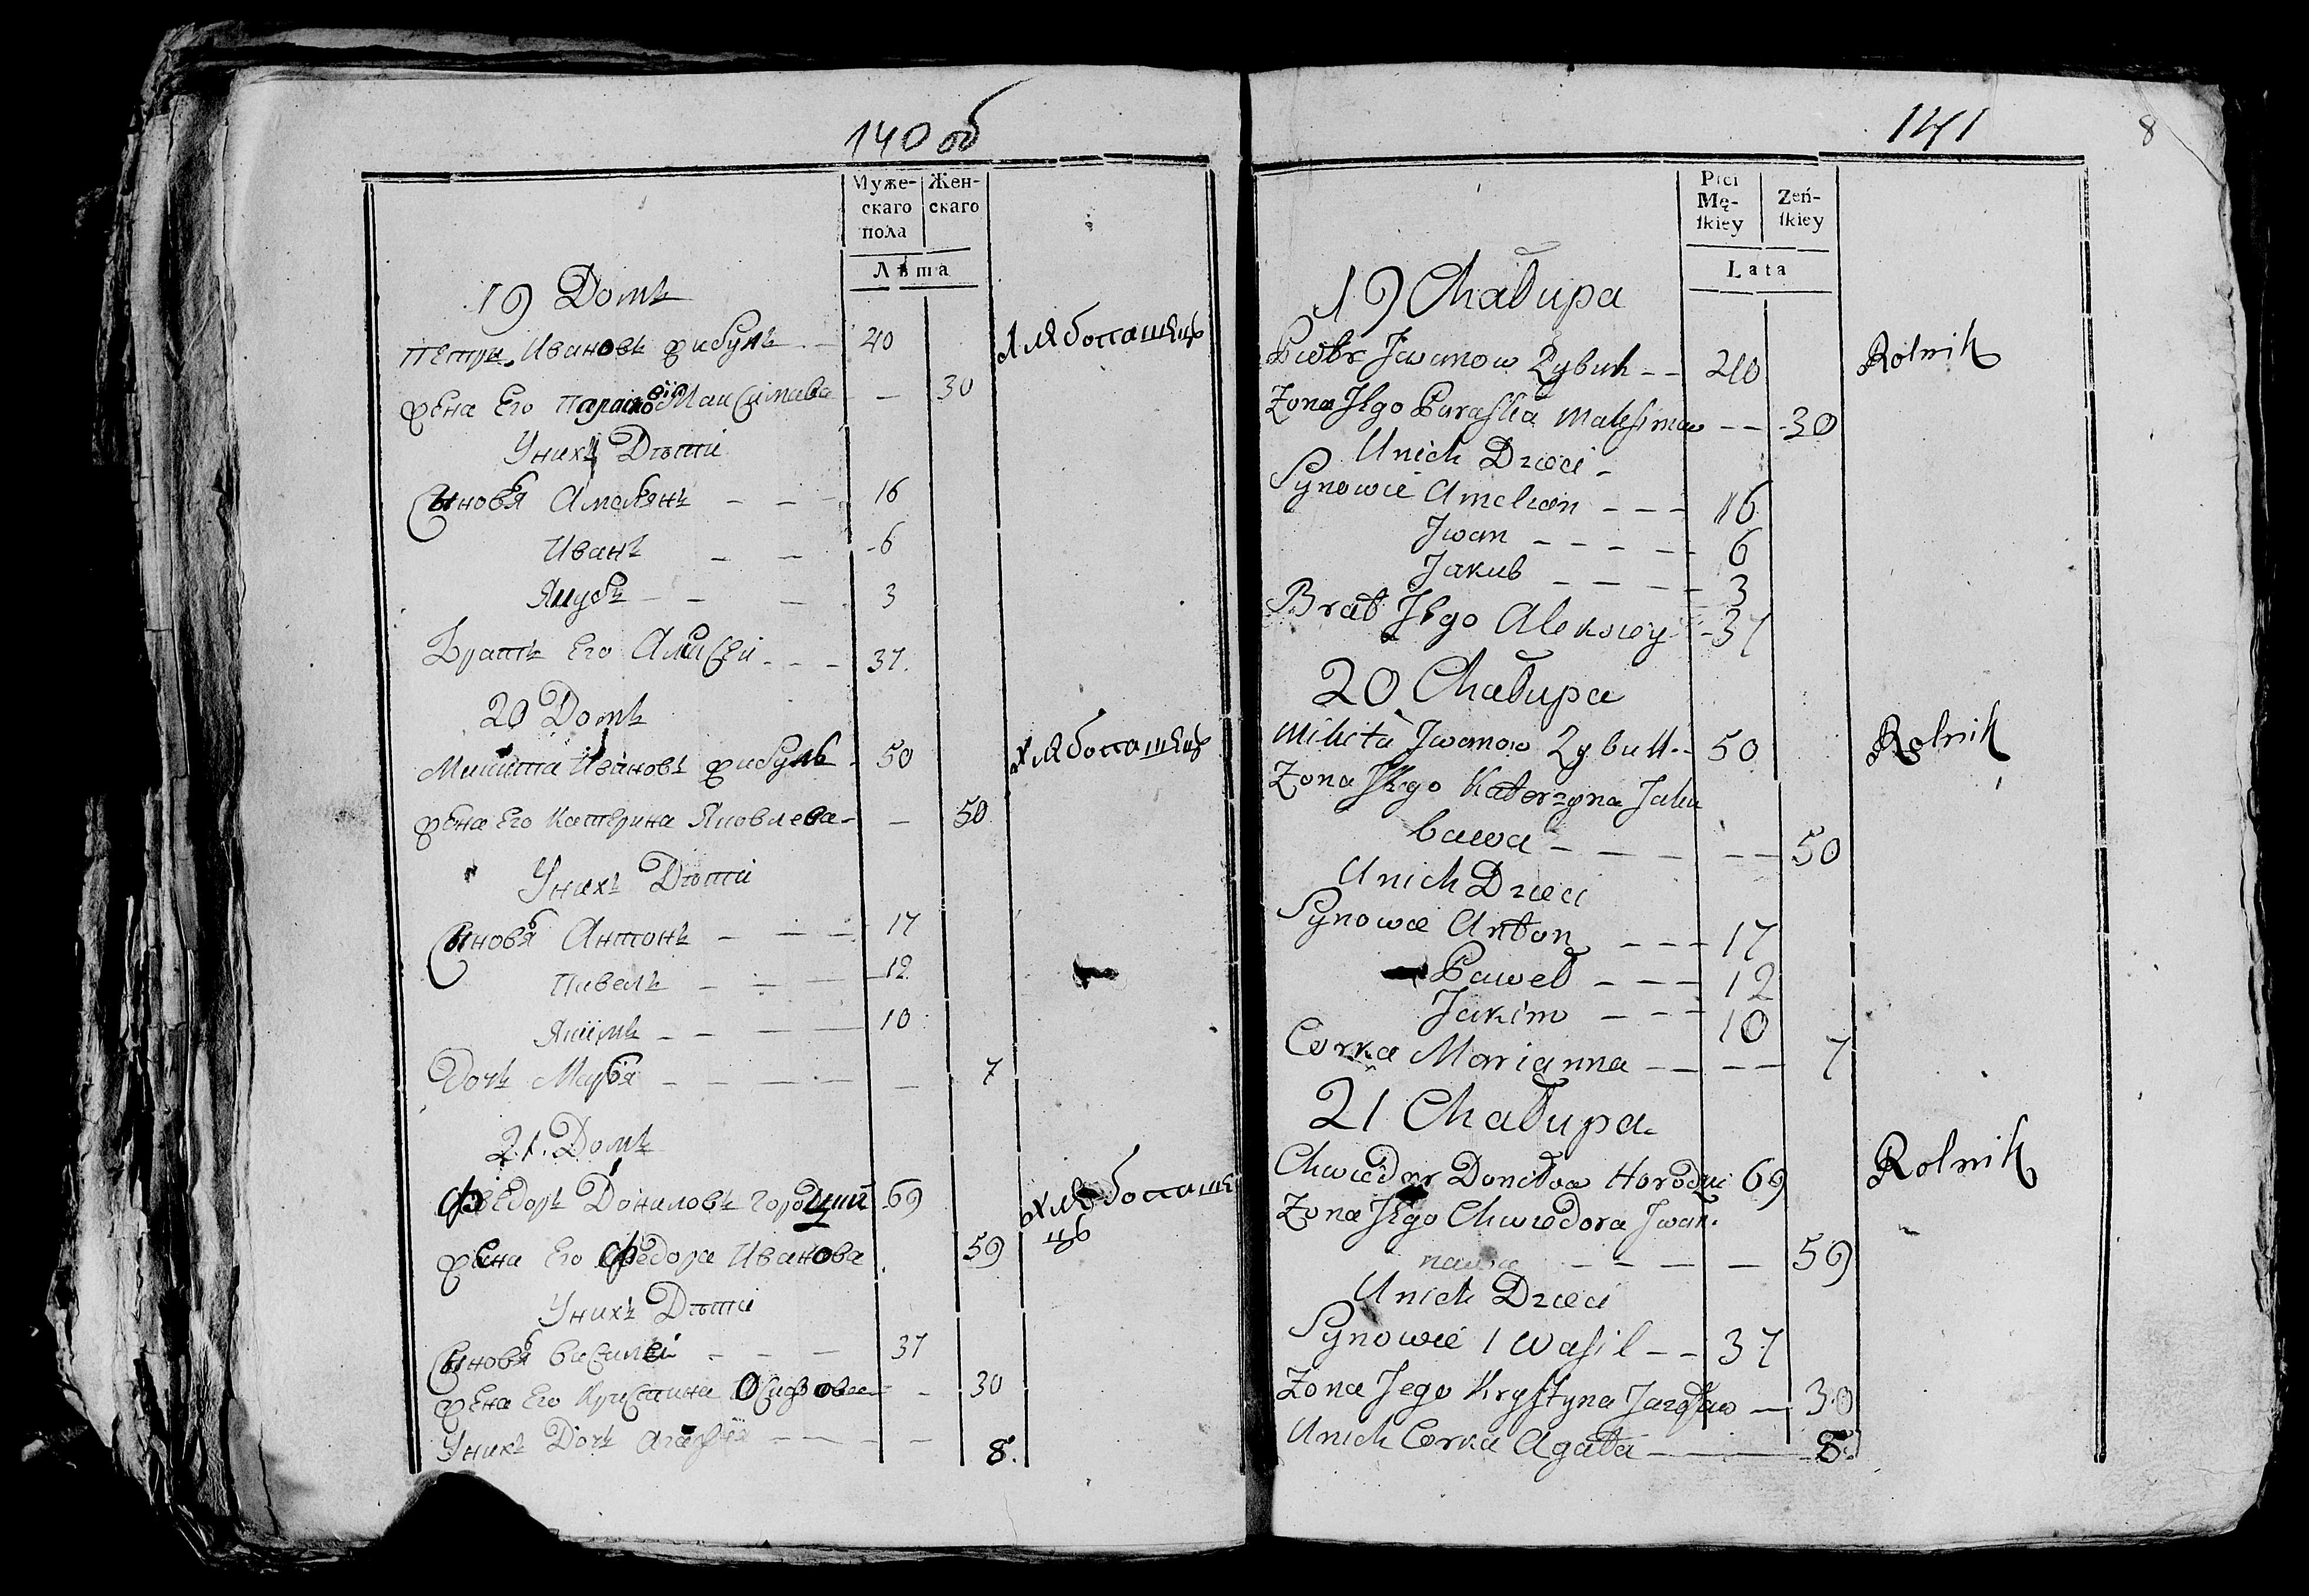 140 об
Муже-
скаго
пола
Жен-
скаго
Лѣта
19 Домъ
Петръ Ивановъ жибуль - - 40 Хлѣбопашецъ
жена Его Параскѡвія Максимава - - 30
Унихъ Дѣти
Сыновя Амелянъ - - - 16
Иванъ - - 6
Якубъ - - - 3
Братъ Его Аликсѣи - - - 37.
20 Домъ
Микита Ивановъ жибуль - 50 Хлѣбопашецъ
жена Его Катерина Яковлева - - 50
Унихъ Дѣти
Сыновя Антонъ - - - 17
Павелъ - - - 12
Якимъ - - - - 10
Дочь Маръя - - - - - 7
21. Домъ
Фѣедоръ Даниловъ 69 Хлѣбопаше
цъ
жена Его Федора Иванова 59
Унихъ Дѣти
Сыновя Василеи - - - 37
жена Его Кристина - 30
Унихъ Дочь Агафия - - - - 8.
141
8
Płci
Mę-
ſkiey
Zeń-
ſkiey
Lata
19 Chałupa
Piotr Jwanow Zybuk - - 40 Rolnik
Zona Jego Paraſka Makſima - - 30
Unich Dzieci -
Synowie Amelian - - - 16
Jwan - - - - - 6
Jakub - - - - 3
Brat Jego Aleksiey - 37
20 Chałupa
Mikita Jwanow Zybull - - 50 Rolnik
Zona Jego Katerzyna Jaku
bawa - - - - - - 50
Unich Dzieci
Synowie Anton - - - 17
Paweł - - - 12
Jakim - - - 10
Corka Marianna - - - - 7
21 Chałupa
Chwiedor Daniłow Horodni 69 Rolnik
Zona Jego Chwiedora Jwan.
nawa - - - - 59
Unich Dzieci
Synowie 1 Waſil - - 37
Zona Jego Kryſtyna - 30
Unich Corka Agata - - - 8.